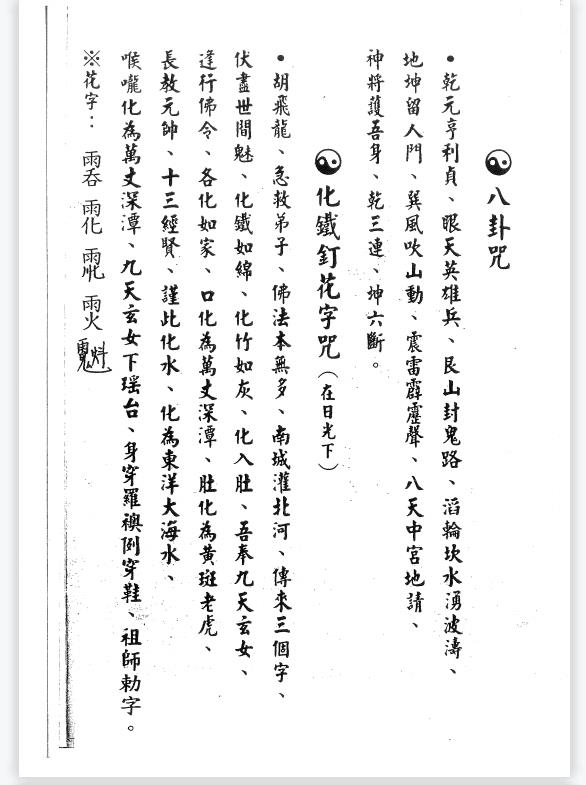 八卦咒
• 乾元亨利貞、眼天英雄兵、艮山封鬼路、滔輪坎水湧波濤、
地坤留人門、巽風吹山動、震雷霹靂聲、八天中宮地請、
神將護吾身、乾三連、坤六斷。
化鐵釘花字咒(在日光下)
• 胡飛龍、急救弟子、佛法本無多、南城灌北河、傳來三個字、
伏盡世間魅、化鐵如綿、化竹如灰、化入肚、吾奉九天玄女、
逢行佛令、各化如家、口化為萬丈深潭、肚化為黄斑老虎、
長教元帥、十三經賢、謹此化水、化為東洋大海水、
喉嚨化為萬丈深潭、九天玄女下瑶台、身穿羅襖倒穿鞋、祖師勅字。
※花字：